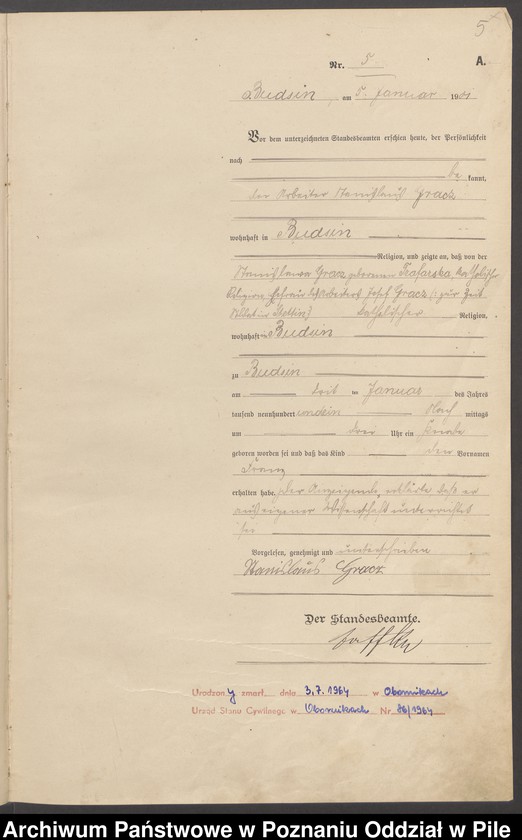 5
Nr. 5 A.
Budsin, am 5. Januar 1901
Vor dem unterzeichneten Standesbeamten erschien heute, der Persönlichkeit
nach
be kannt,
der Arbeiter Stanislaus Gracz
wohnhaft in Budsin
Religion, und zeigte an, daß von der
Stanislawa Gracz geborenen katholischer
Religion, Ehefrau des Arbeiters Josef Gracz, zur Zeit
Soldat in Stettin, katholischer Religion,
wohnhaft in Budsin
zu Budsin
am ten Januar des Jahres
tausend neunhundert undein Nach mittags
um drei Uhr ein Knabe
geboren worden sei und daß das Kind den Vornamen
Franz
erhalten habe. Der Anzeigende erklärte, daß er
aus eigener Wissenschaft unterrichtet
sei
Vorgelesen, genehmigt und unterschrieben
Stanislaus Gracz
Der Standesbeamte.
Urodzony zmarł dnia 3.7.1964 w Obornikach
Urząd Stanu Cywilnego w Obornikach Nr. 86/1964
Archiwum Państwowe w Poznaniu Oddział w Pile